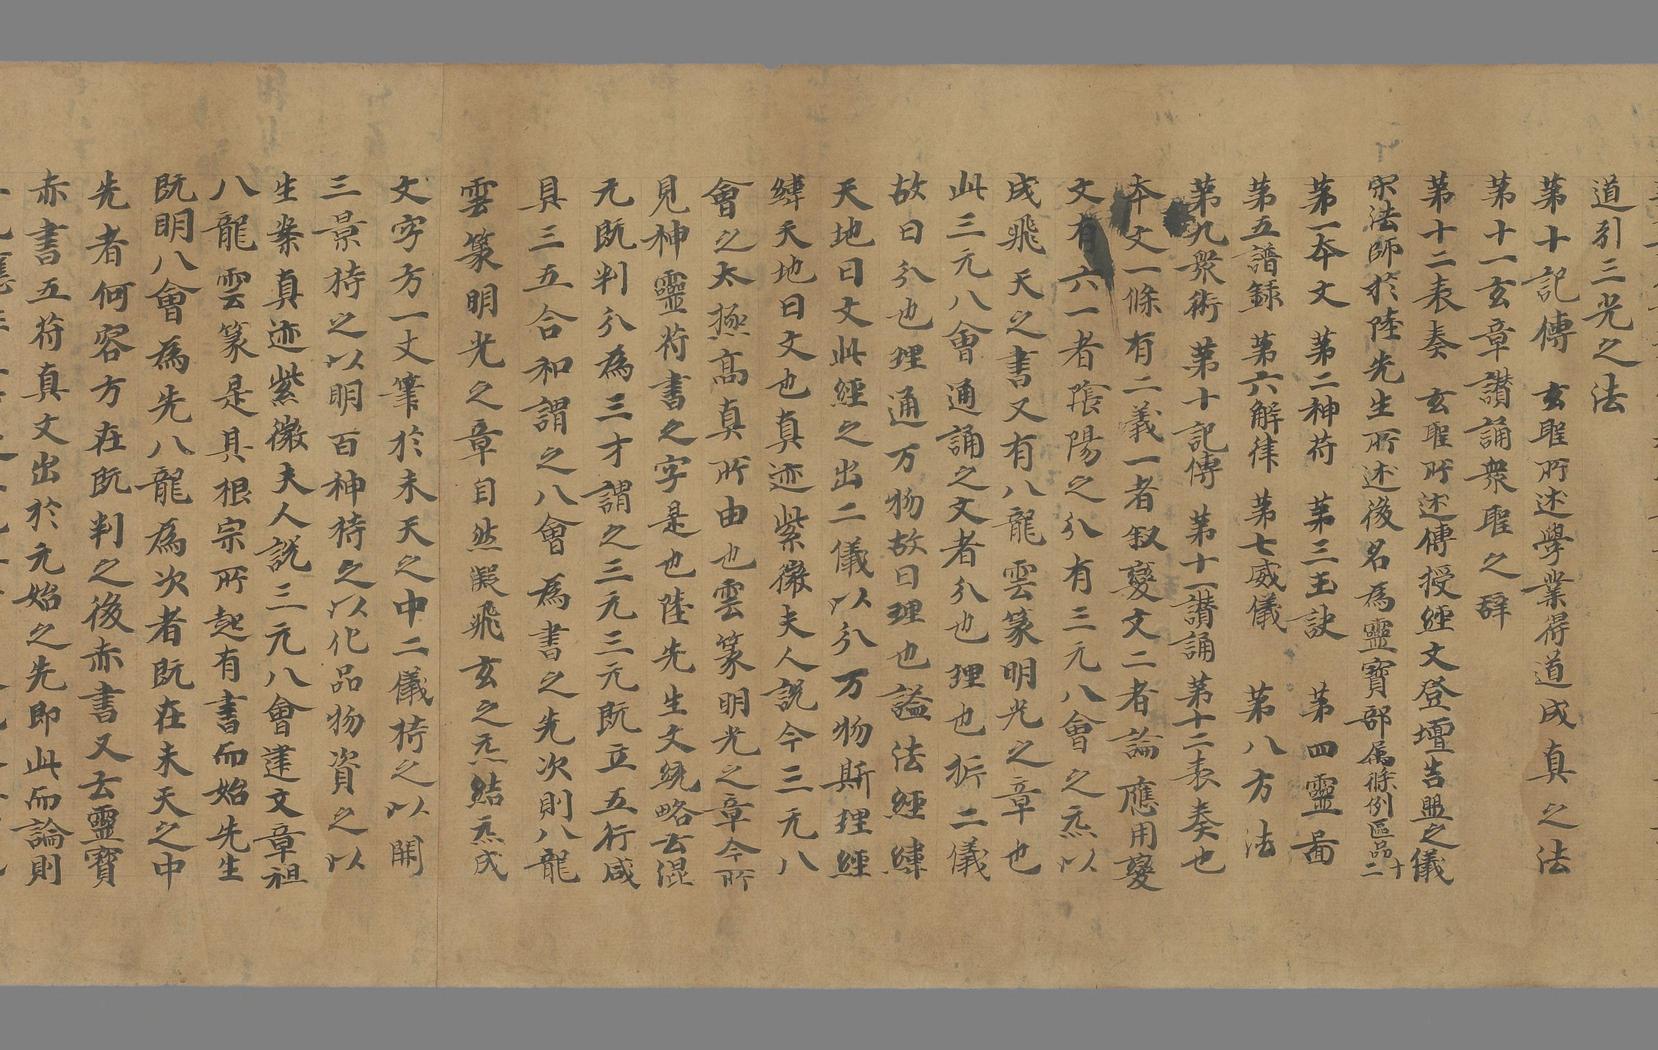 道引三光之法
第十記傳 玄聖所述學業得道成真之法
第十一玄章讃誦衆聖之辞
第十二表奏 玄聖所述傳授經文登壇告盟之儀
宋法師於陸先生所述後名爲靈寶部属條例區品十二
第一本文 第二神符 第三玉訣 第四靈啚
第五譜録 第六解律 第七威儀 第八方法
第九衆術 第十記傳 第十一讃誦 第十二表奏也
本文一條有二義一者叙變文二者論應用變
文有六一者陰陽之分有三元八會之炁以
成飛天之書又有八龍雲篆明光之章也
此三元八會通誦之文者分也理也析二儀
故曰分也理通万物故曰理也謚法經緯
天地曰文此經之出二儀以分万物斯理經
緯天地曰文也真迹紫微夫人説今三元八
會之太極高真所由也雲篆明光之章今所
見神靈符書之字是也陸先生文統略云混
元既判分爲三才謂之三元三元既立五行咸
具三五合和謂之八會爲書之先次則八龍
雲篆明光之章自然凝飛玄之炁結炁成
文字方一丈筆於未天之中二儀持之以開
三景持之以明百神持之以化品物資之以
生案真迹紫微夫人説三元八會建文章祖
八龍雲篆是其根宗所起有書而始先生
既明八會爲先八龍爲次者既在未天之中
先者何容方在既判之後赤書又云靈寶
赤書五符真文出於元始之先即此而論則